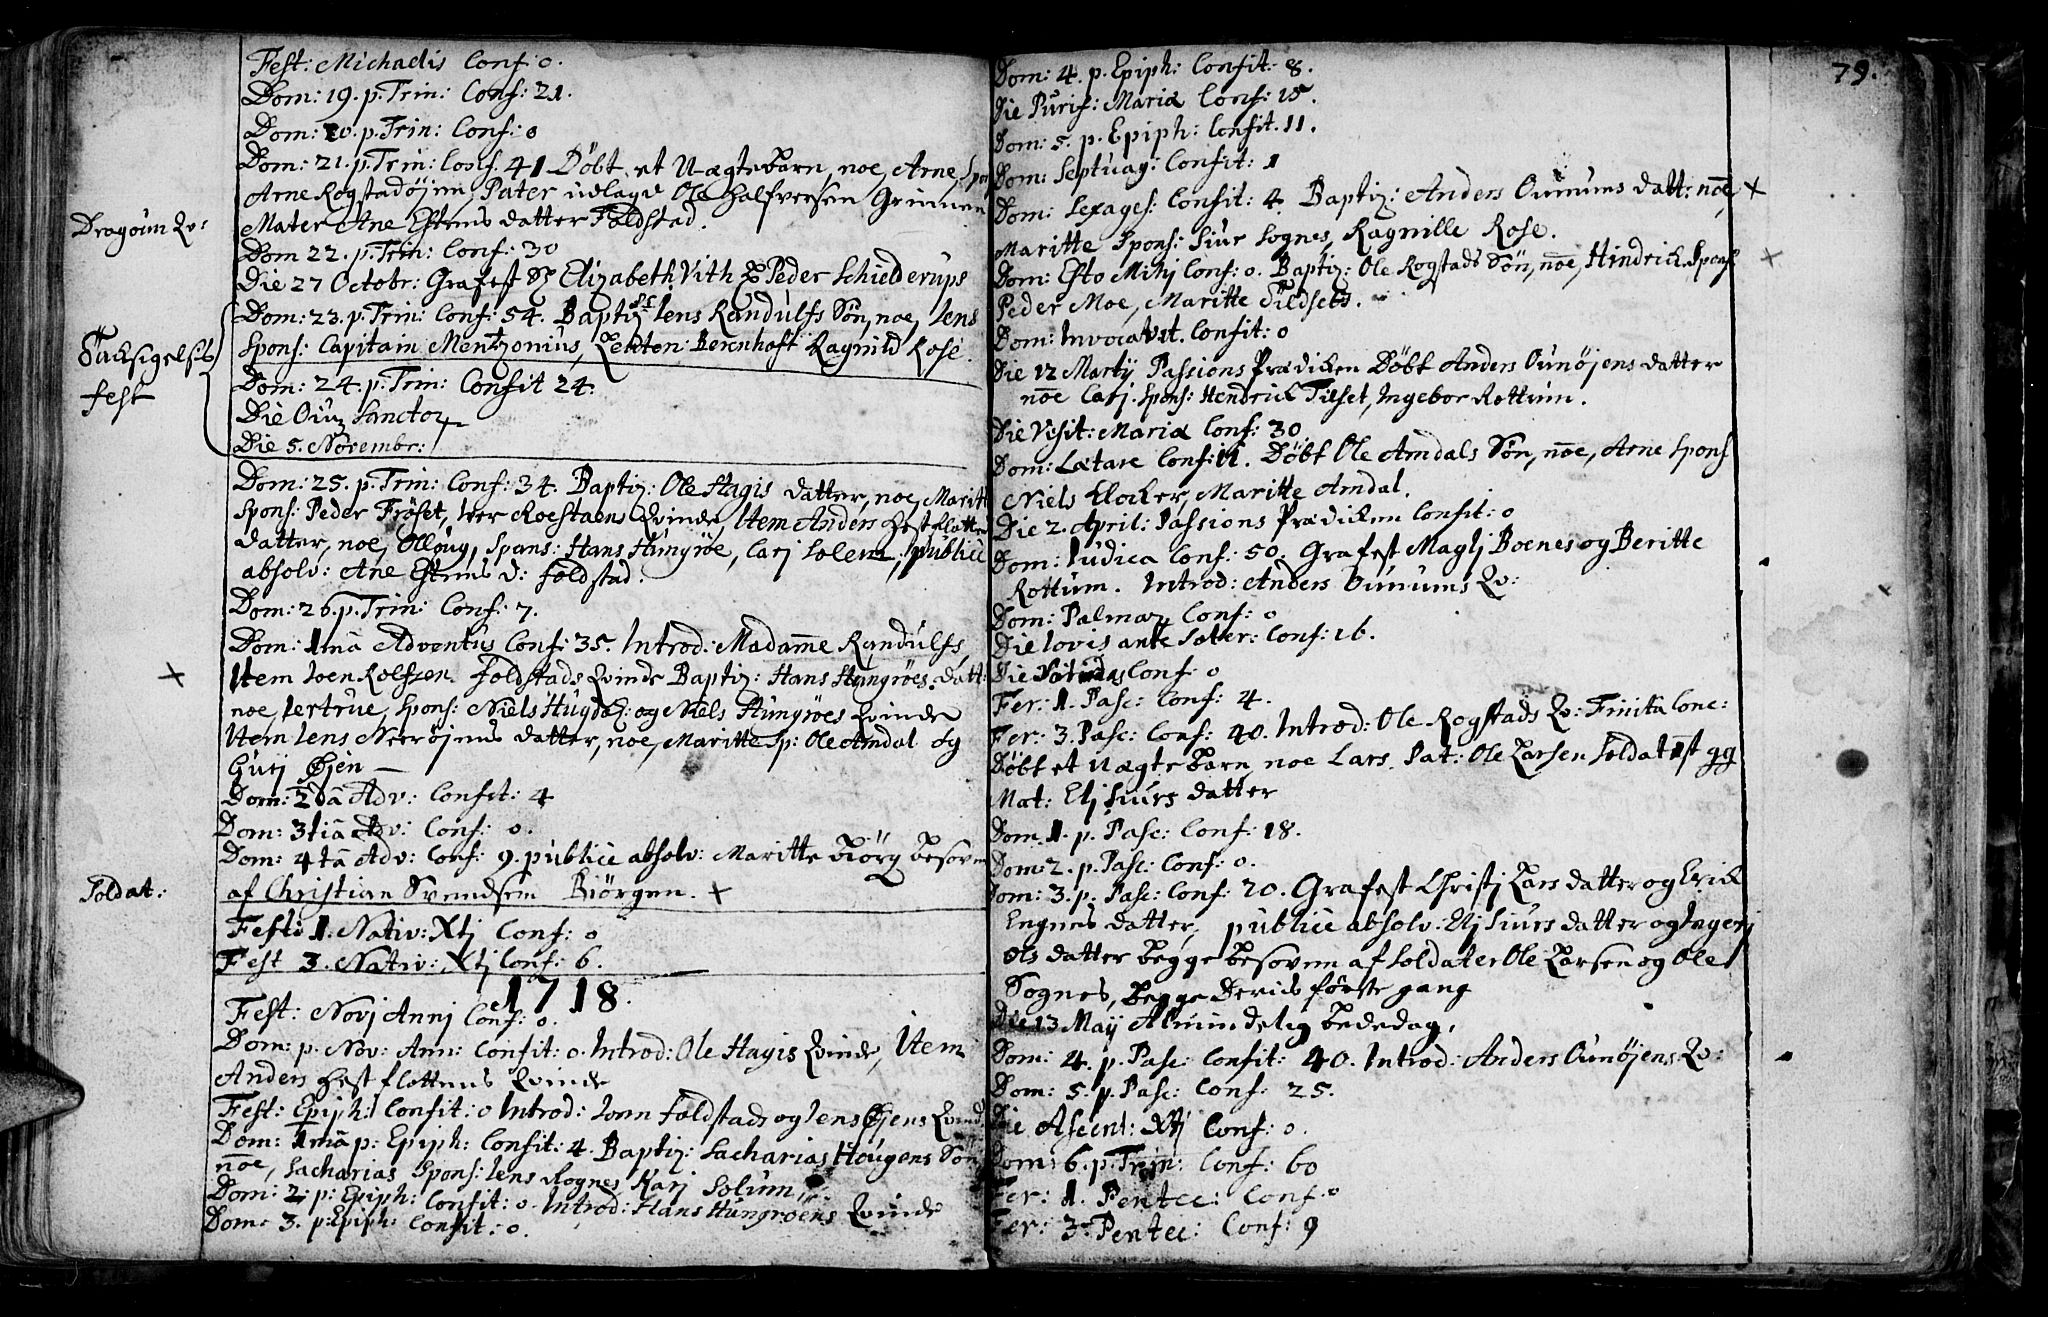 Fest: Michaelis Conf: 0.
Dom: 19. p. Trin: Conf: 21.
Dom: 20. p. Trin: Conf: 0
Dom: 21. p. Trin: Conf. 41 Döbt et Uægte barn, noe, Arne, Spon
Arne Rogstadøjen, Pater udlagd Ole Halfversen Grinnen
Dragoun Qv: Mater Ane Estens datter Foldstad.
Dom 22. p. Trin: Conf: 30
Die 27 Octobr: Grafest Elizabeth Vith Peder Schielderups
Dom: 23. p. Trin: Conf: 54. Baptiz Jens Randulfs Sön, noe, Jens
Tacksigelsis fest
Spons: Capitain Mentzonius, Bernhoft Ragnild Rose.
Dom: 24. p. Trin: Confit 24.
Die Sanctor
Die 5. Novembr:
Dom: 25. p. Trin: Conf: 34. Baptiz: Ole Hagis datter, noe, Maritt
Spons: Peder Fröset, Qvinde, Item Anders Hestflotten
datter, noe, Spons: Hans Hungröe, Carj Solem, publice
absolv: Ane Estens d: Foldstad.
Dom: 26. p. Trin: Conf: 7.
Dom: 1mâ Adventus Conf: 35. Introd: Madame Randulfs,
Item Joen Foldstads Qvinde Baptiz: Hans Hungröes datt:
noe, Jertrue, Spons: Niels Hugdal: og Niels Hungröes Qvinde
Item Jens Neerøjens datter, noe, Maritte Sp: Ole Amdal og
Gurj Øjen
Dom: 2dâ Adv: Confit: 4
Dom: 3tiâ Adv: Conf: 0.
Dom: 4tâ Adv: Conf: 9. publice absolv: Maritte Biörg besoven
Soldat: af Christian Svendsen Biörgen. +
Fest: 1. Nativ: Xtj Conf: 0
Fest 3. Nativ: Xtj Conf: 6.
1718.
Fest: Novj Annj Conf: 0.
Dom: p. Nov: Ann: Confit: 0. Introd: Ole Hagis Qvinde, Item
Anders Hestflottens Qvinde
Fest: Epiph: Confit: 0 Introd: Joen Foldstads og Jens Øjens Qvind
Dom: 1mâ p: Epiph: Confit: 4. Baptiz: Sacharias Hougens Sön
noe, Sacharias Spons: Jens Rognes Karj Solum,
Dom: 2 p: Epiph: Confit: 0. Introd: Hans Hungröens Qvinde
Dom: 3. p: Epiph: Confit: 0.
79.
Dom: 4. p. Epiph: Confit: 8.
Die Purif: Mariæ Conf: 15.
Dom: 5. p. Epiph: Confit. 11.
Dom: Septuag: Confit: 1
Dom: Sexages: Confit: 4. Baptiz: Anders Ounums datt: noe, +
Maritte Spons: Siur Sognes, Ragnille Rose.
Dom: Esto Mihj Conf: 0. Baptiz: Ole Rogstads Sön, noe, Hindrick Spons +
Peder Moe, Maritte Tildsets.
Dom: Invocavit. Confit: 0
Die 12 Martij Passions Prædicken Döbt Anders Ounøjens datter
noe Carj. Spons: Hendrick Tilset, Ingebor Rottum.
Die Visit: Mariæ Conf: 30
Dom: Lætare Conf: 11. Döbt Ole Amdals Sön, noe, Arne Spons
Niels Klocker, Maritte Amdal.
Die 2. April: Passions Prædicken Confit: 0
Dom: Judica Conf: 50. Grafest Maglj Boenes og Beritte
Rottum. Introd: Anders Ounums Qv:
Dom: Palmar Conf: 0
Die Jovis ante Conf: 16.
Die Conf 0
Fer: 1. Pasc: Conf: 4.
Fer: 3. Pasc: Conf: 40. Introd: Ole Rogstads Qv: Finita Conc:
Döbt et Uægte barn, noe Lars. Pat: Ole Larsen Soldat 1st gg
Mat: Elj Siurs datter
Dom. 1. p. Pasc: Conf: 18.
Dom: 2. p. Pasc: Conf: 0.
Dom: 3. p. Pasc: Conf: 20. Grafest Christj Lars datter og Erick
Engnes datter, publice absolv: Elj Siurs datter og Ingerj
Ols datter begge besoven af Soldater Ole Larsen og Ole
Sognes, begge deris förste gang
Die 13 Maij Almindelig bededag.
Dom: 4. p. Pasc: Confit: 40. Introd: Anders Ounøjens Qv:
Dom: 5. p. Pasc: Conf: 25.
Die Ascens: Xtj Conf: 0.
Dom: 6. p. Trin: Conf: 60
Fer: 1. Pentec: Conf: 0
Fer: 3. Pentec: Conf: 9